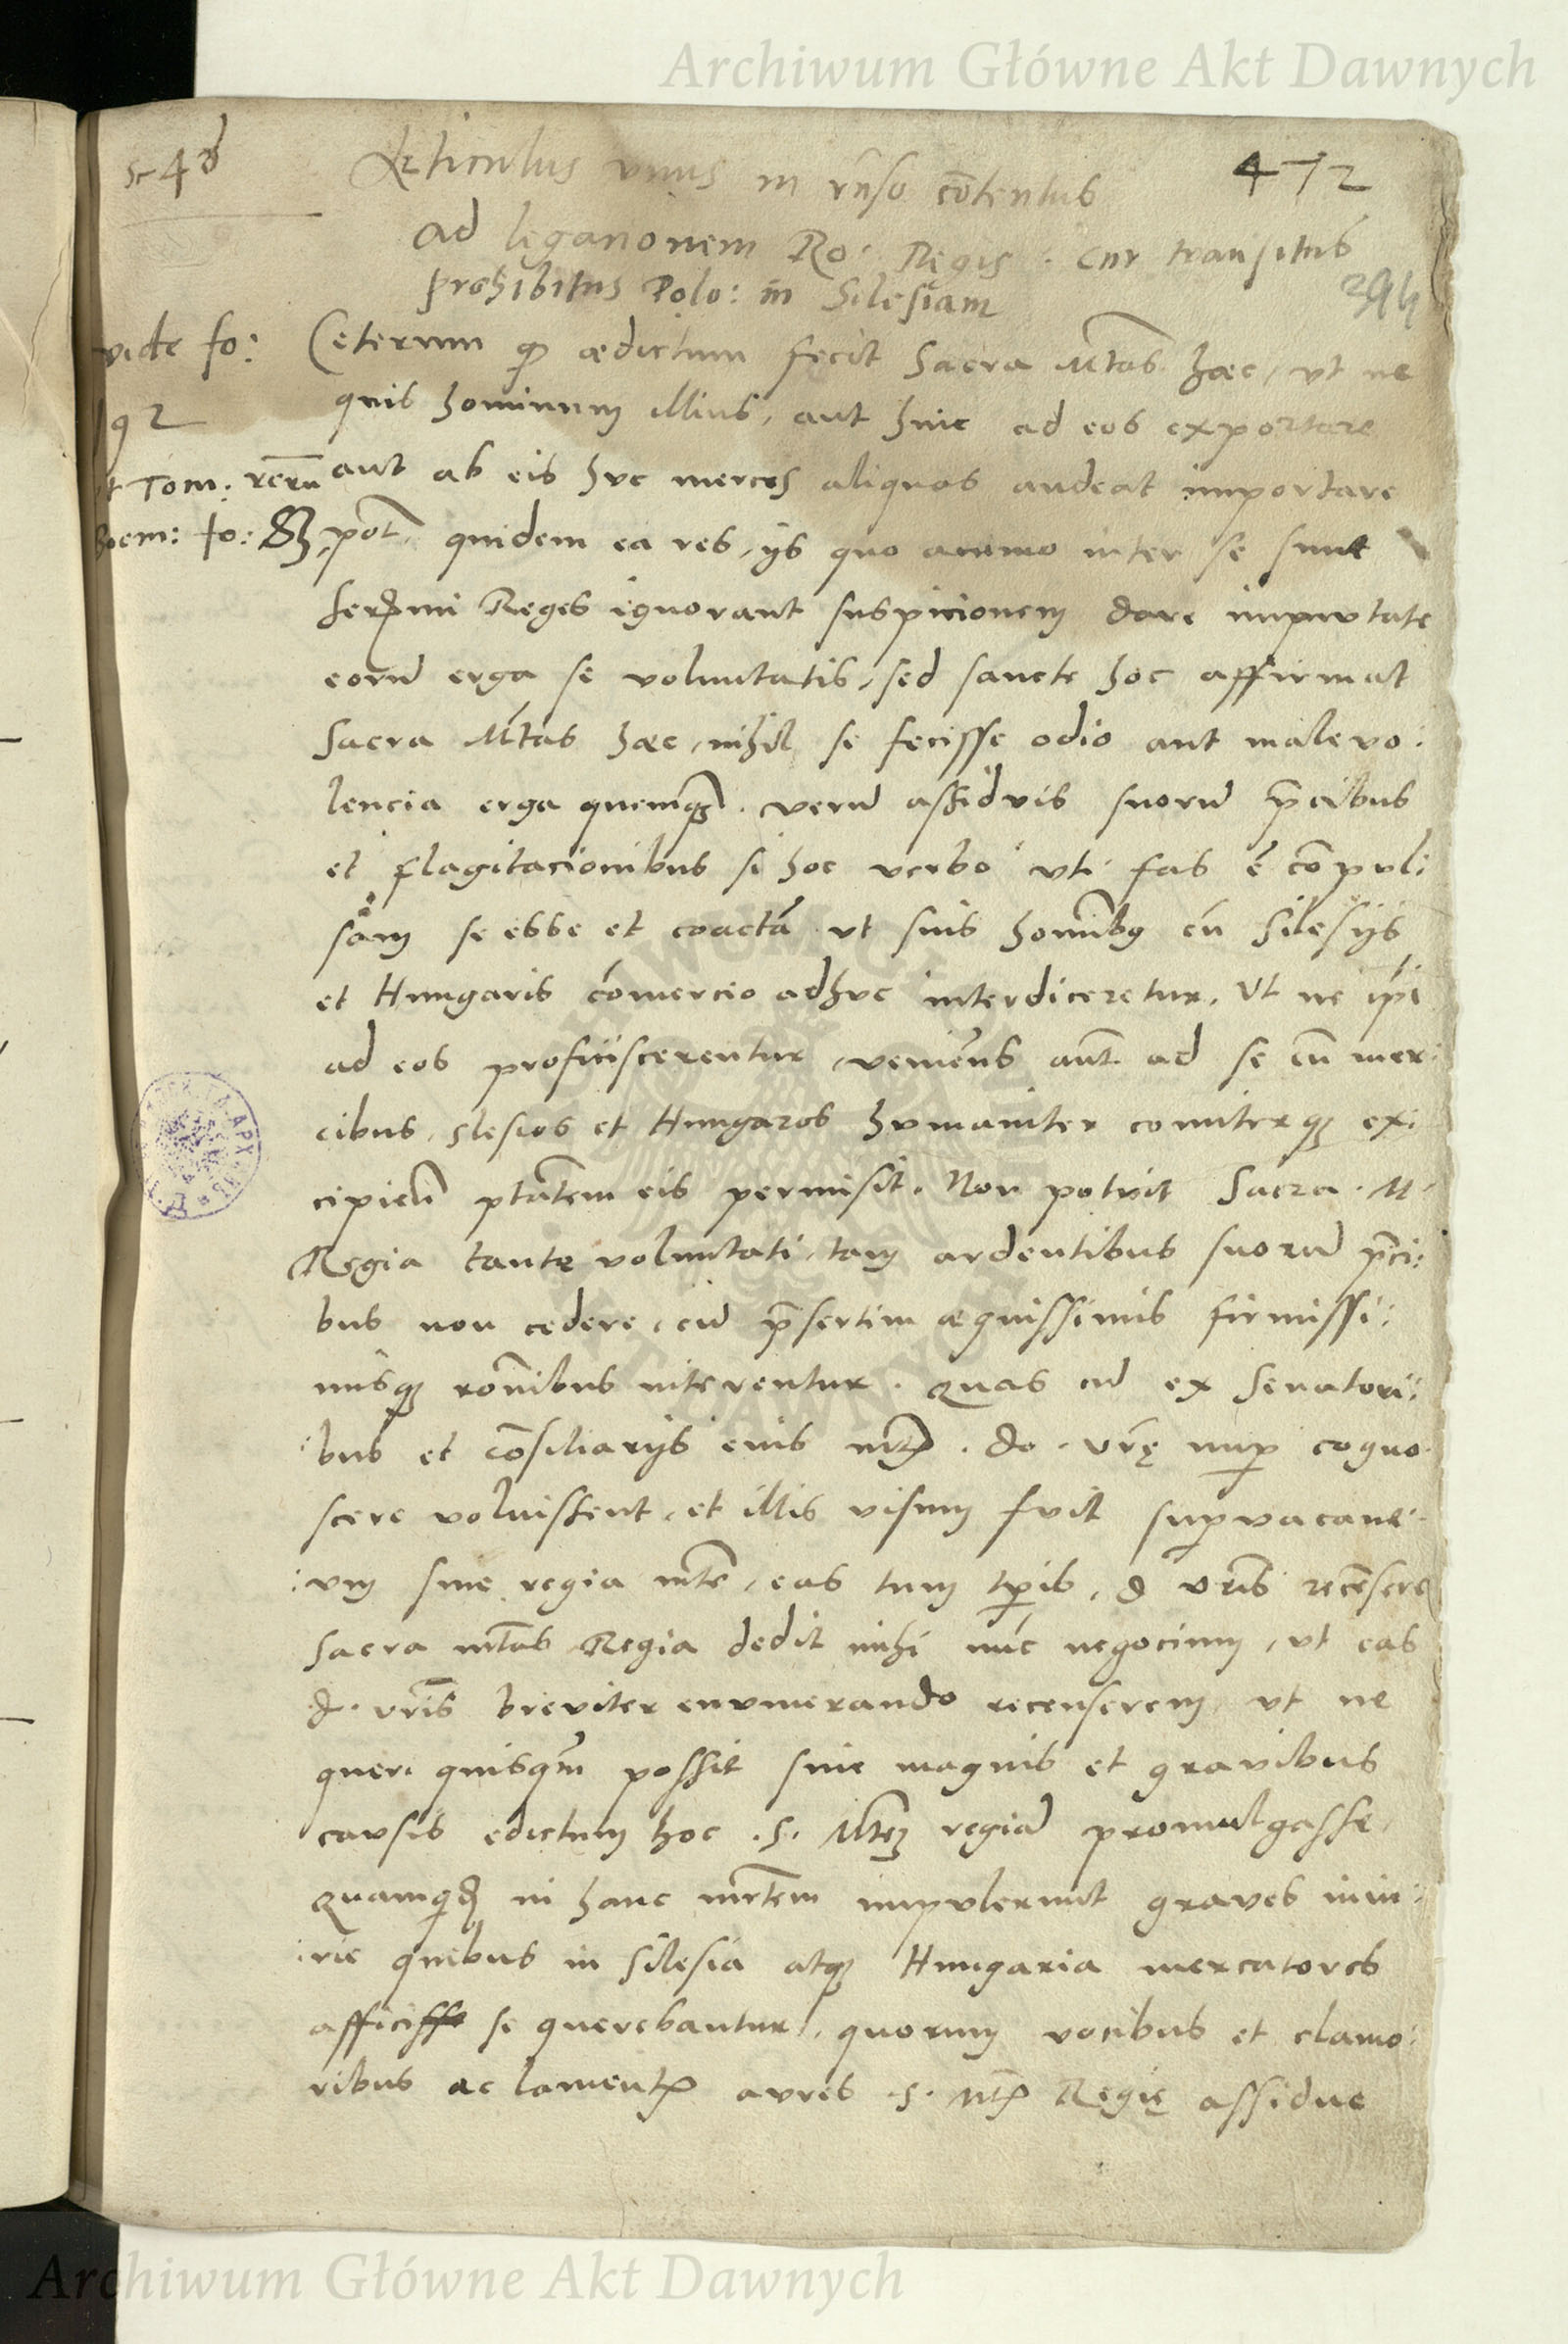 Archiwum Główne Akt Dawnych
472
Articulus unus in rñso cõtentus
ad legationem Ro: Regis. cur transitus
prohibitus Polo: in Silesiam
vide fo:
192
Tom: rerũ
fo: 83
Ceterum qđ ædictum fecit Sacra Mtas hæc, ut ne
quis hominum illius, aut hinc ad eos exportare
aut ab eis huc merces aliquas audeat importare
pot quidem ea res, ijs quo animo inter se sunt
serm̃i Reges ignorant suspicionem dare
eorũ erga se voluntatis, sed sancte hoc affirmat
Sacra Mtas hæc, nihil se fecisse odio aut malevo:
lencia erga quemq̃. verũ assiduis suorũ p̃cibus
et flagitacionibus si hoc verbo uti fas ẽ cõpul:
sam se esse et coactã ut suis hom̃ibq cũ Silesijs
et Hungaris cõmercio adhuc interdiceretur. Ut ne ip̃i
ad eos proficiscerentur, venien̄s aut̃ ad se cũ mer:
cibus, Slesios et Hungaros humaniter comiterq3 ex:
cipien̄di ptãtem eis permisit. Non potuit Sacra. M.
Regia tante voluntati, tam ardentibus suorũ p̃ci:
bus non cedere, cũ p̃sertim æquissimis firmissi:
misq3 rõnibus niterentur. Quas cũ ex Senatori:
:bus et cõsiliarijs eius mtis. do. vrę nup cogno.
scere voluissent, et illis visum fuit supvacane:
:um sine regia mte, eas tum tp̃is, d vris recẽsere
Sacra mtas Regia dedit mihi nũc negocium, ut eas
d. vris breviter enumerando recenserem, ut ne
queri quisq̃m possit sine magnis et gravibus
causis edictum hoc .S. Mtem regiã promulgasse,
Quamqđ in hanc mentem impulerunt graves iniu:
:rie quibus in Silesia atq3 Hungaria mercatores
affici se querebantur, quorum vocibus et clamo:
ribus ac lamentis aures .S. Mtis Regię assidue
Archiwum Główne Akt Dawnych